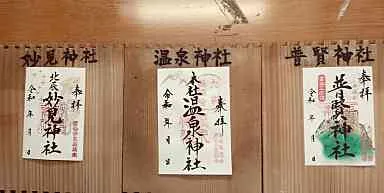 妙見神社
奉拝
北辰
妙見神社
令和 年 月 日
温泉神社
奉拝
本社
温泉神社
令和 年 月 日
普賢神社
奉拝
普賢神社
令和 年 月 日